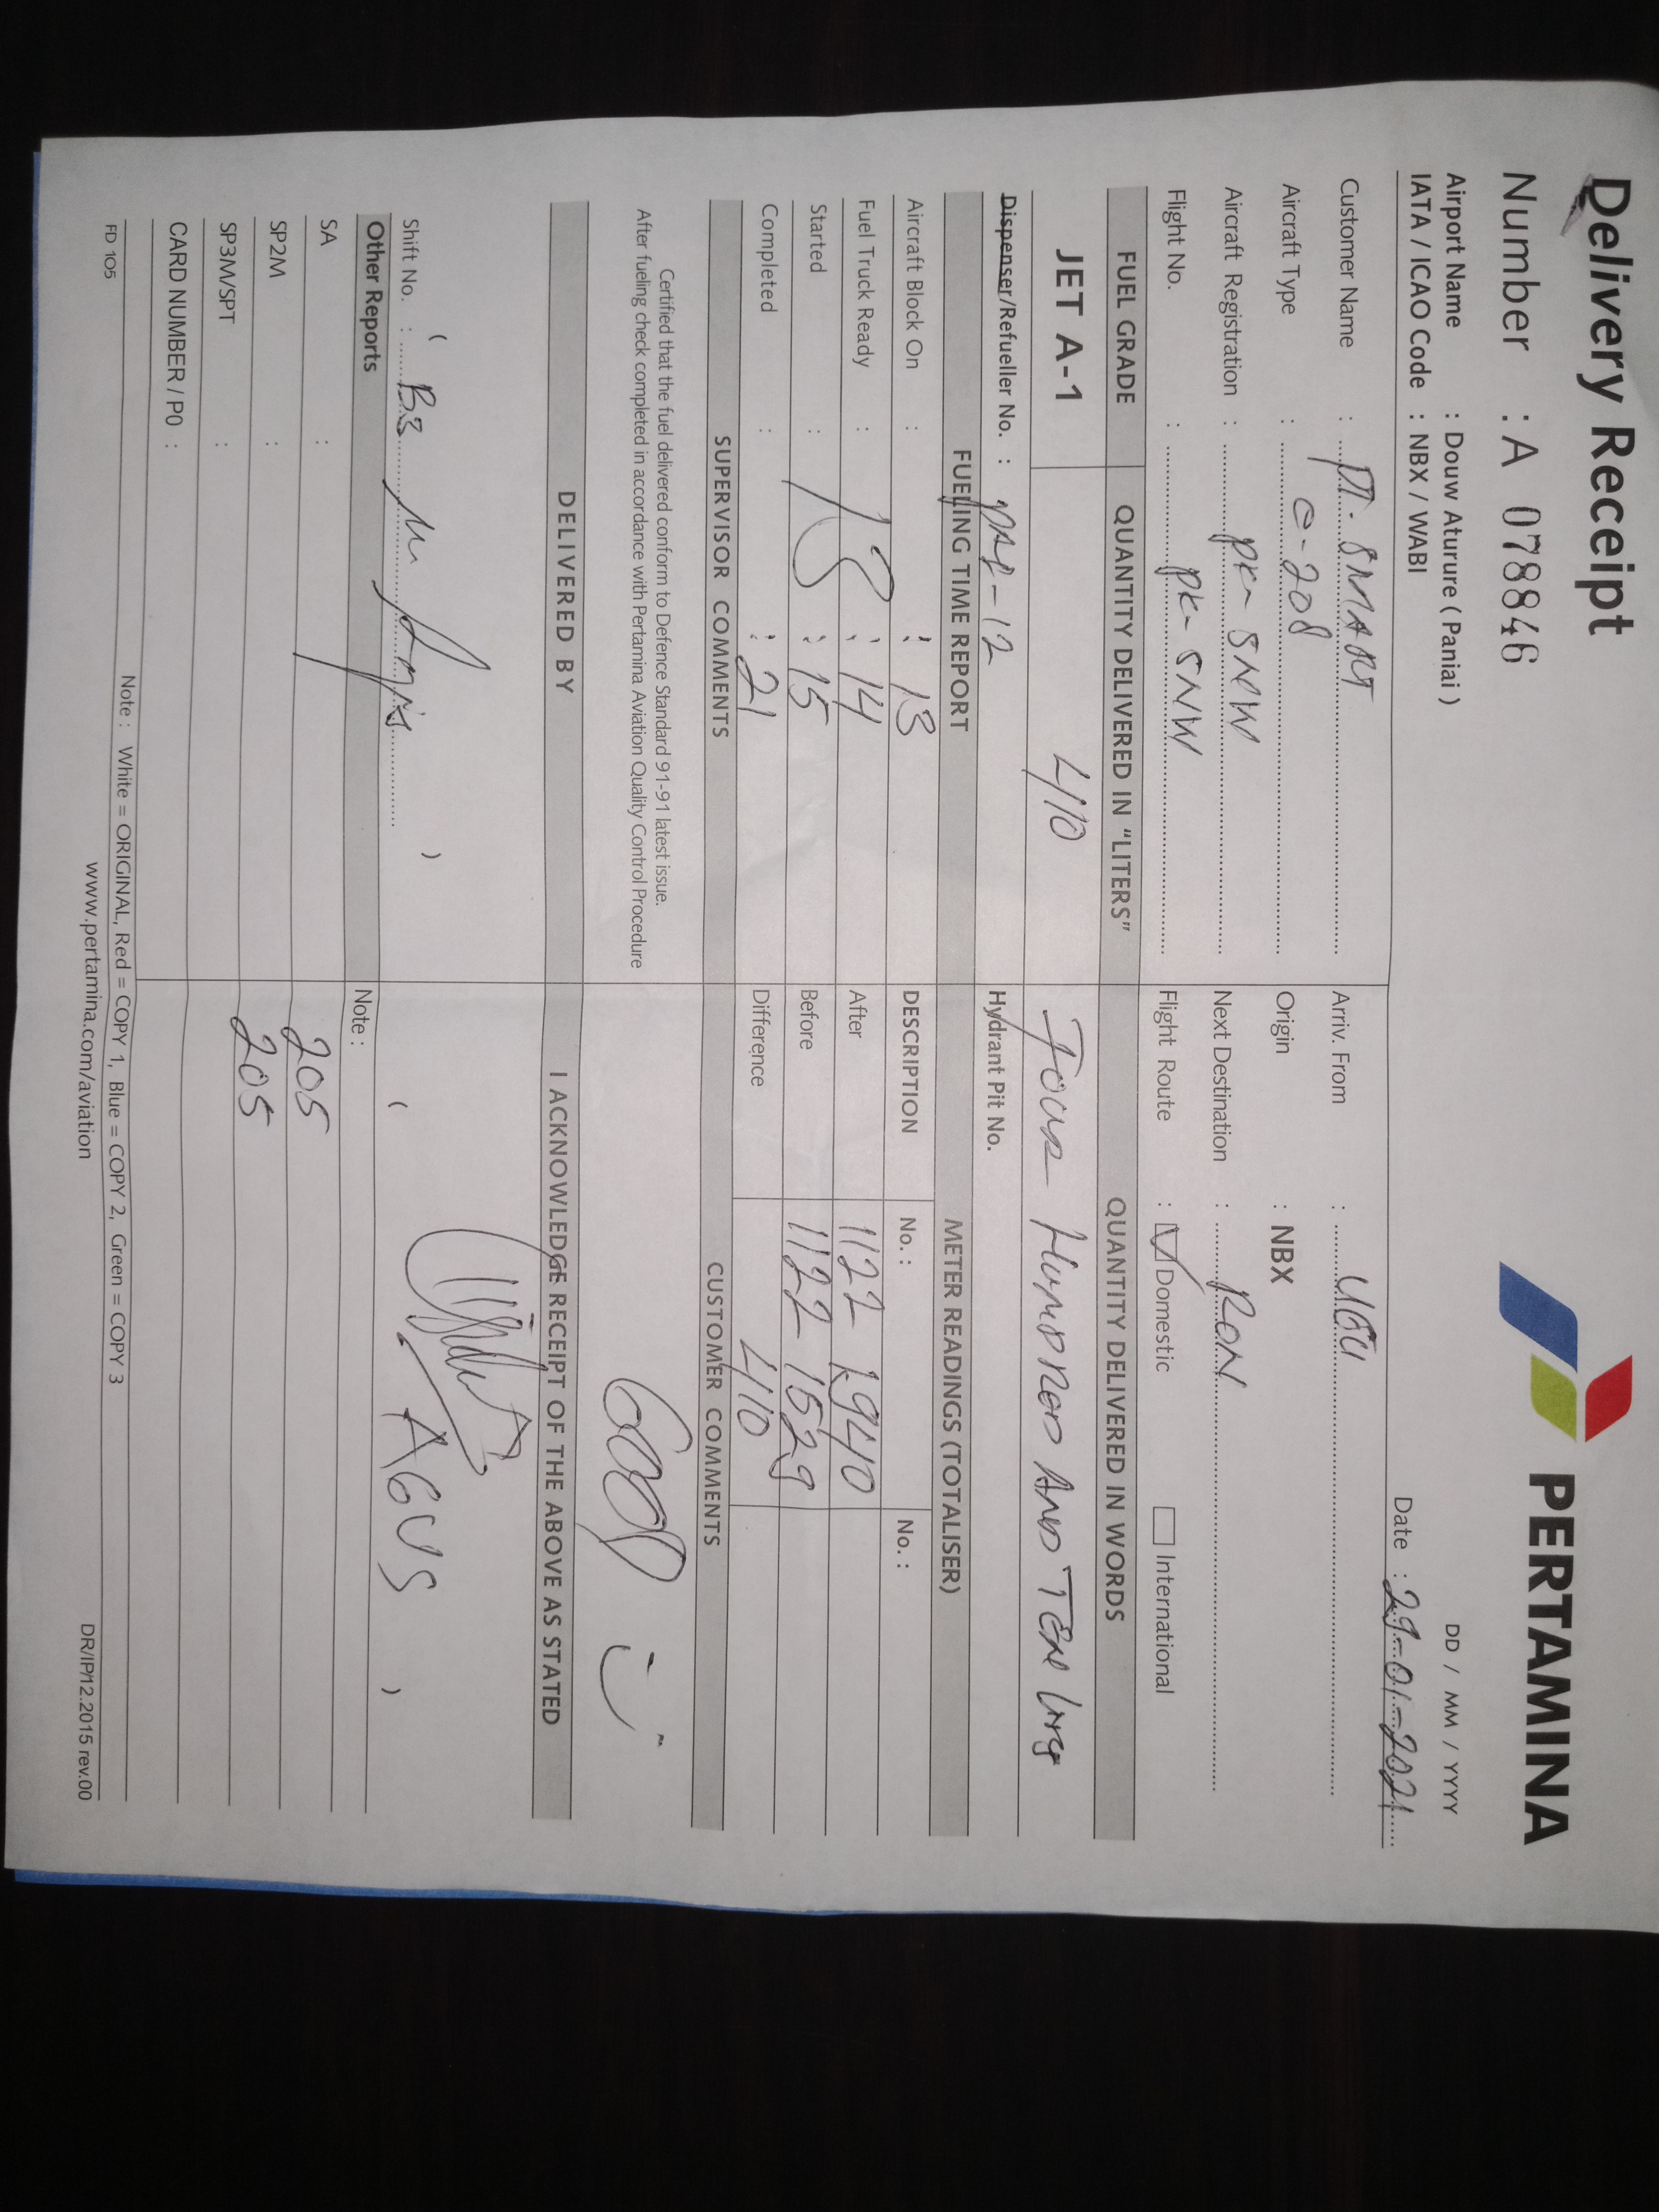 Delivery Receipt
PERTAMINA
Number : A 078846
DD / MM / YYYY
Airport Name : Douw Aturure ( Paniai )
IATA / ICAO Code : NBX / WABI
Date : 29-01-2021
Customer Name : PT. SMART
Arriv. From :
Aircraft Type : C-208
Origin : NBX
Aircraft Registration : PK-SNW
Next Destination : RON
Flight No. : PK-SNW
Flight Route : Domestic International
FUEL GRADE QUANTITY DELIVERED IN "LITERS" QUANTITY DELIVERED IN WORDS
JET A-1 410 Four Hundred And Ten
Dispenser/Refueller No. : Hydrant Pit No.
FUELING TIME REPORT METER READINGS (TOTALISER)
Aircraft Block On : : 13 DESCRIPTION No. : No. :
Fuel Truck Ready : : 14 After 1122 1940
Started : : 15 Before 1122 1529
Completed : : 21 Difference 410
SUPERVISOR COMMENTS CUSTOMER COMMENTS
Certified that the fuel delivered conform to Defence Standard 91-91 latest issue.
After fueling check completed in accordance with Pertamina Aviation Quality Control Procedure
Good
DELIVERED BY I ACKNOWLEDGE RECEIPT OF THE ABOVE AS STATED
( )
Shift No. :
( AGUS )
Other Reports Note :
SA : 205
SP2M : 205
SP3M/SPT :
CARD NUMBER / PO :
Note : White = ORIGINAL, Red = COPY 1, Blue = COPY 2, Green = COPY 3
FD 105 www.pertamina.com/aviation DR/IP/12.2015 rev.00